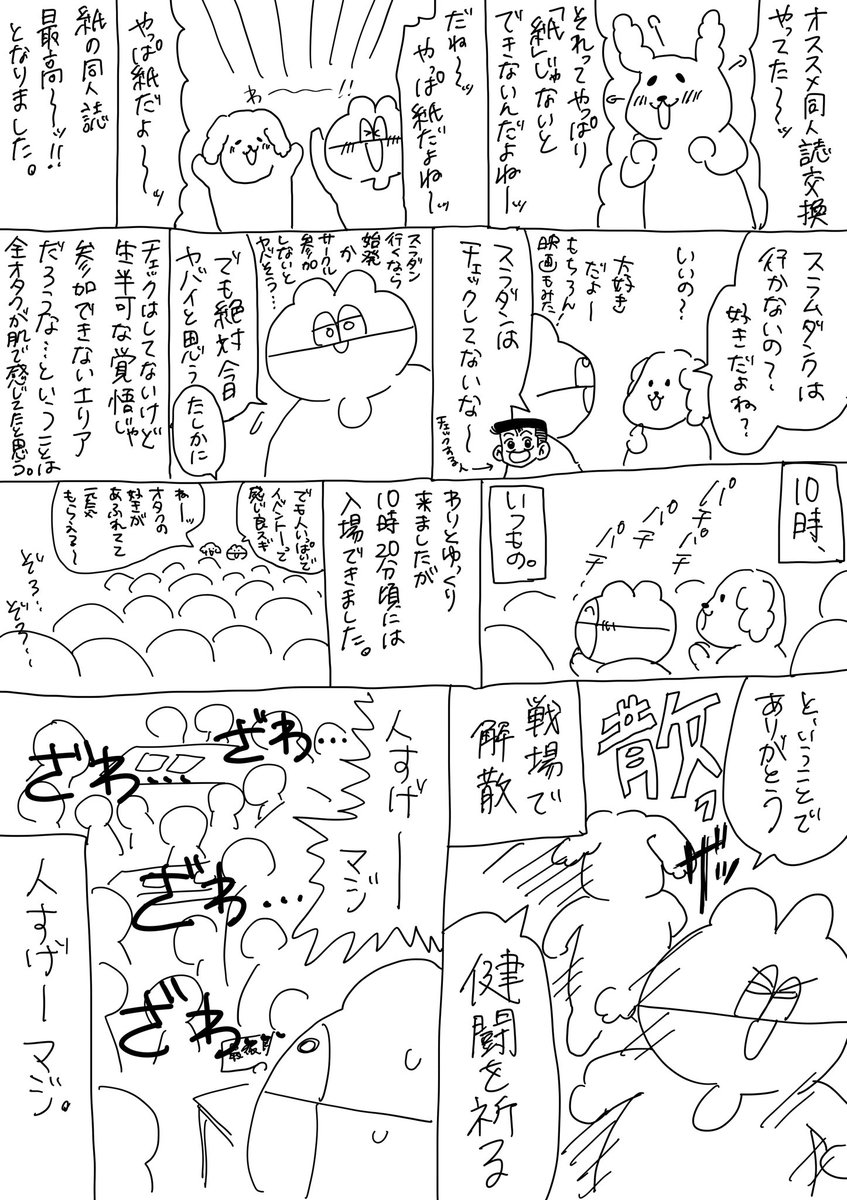 オススメ同人誌交換
やってた〜ッ
それってやっぱり
「紙」じゃないと
できないんだよねーッ
だね〜ッ
やっぱ紙だよねーッ
わ〜〜!!
やっぱ紙だよ〜〜ッ
紙の同人誌
最高〜ッ!!
となりました。
スラムダンクは
行かないの?
好きだよね?
いいの?
大好き
だよー
もちろん
映画もみた!
スラダンは
チェックしてないな〜
チェックする人→
スラダン
行くなら
始発
か
サークル
参加
しないと
ヤバそう…
でも絶対今日
ヤバイと思う
たしかに
チェックはしてないけど
生半可な覚悟じゃ
参加できないエリア
だろうな…ということは
全オタクが肌で感じてたと思う。
10時、
パチ
パチ
パチ
パチ
いつもの。
わりとゆっくり
来ましたが
10時20分頃には
入場できました。
でも人いっぱいで
イベントーって
感じ良スギ
ねーッ
オタクの
好きが
あふれてて
元気
もらえる〜
ぞろ…
ぞろ…
と、いうことで
ありがとう
散ッ
ザッ
戦場で
解散
健闘を祈る
人すげー
マジ
ざわ…
ざわ…
ざわ…
ざわ…
最後尾
人すげー マジ。